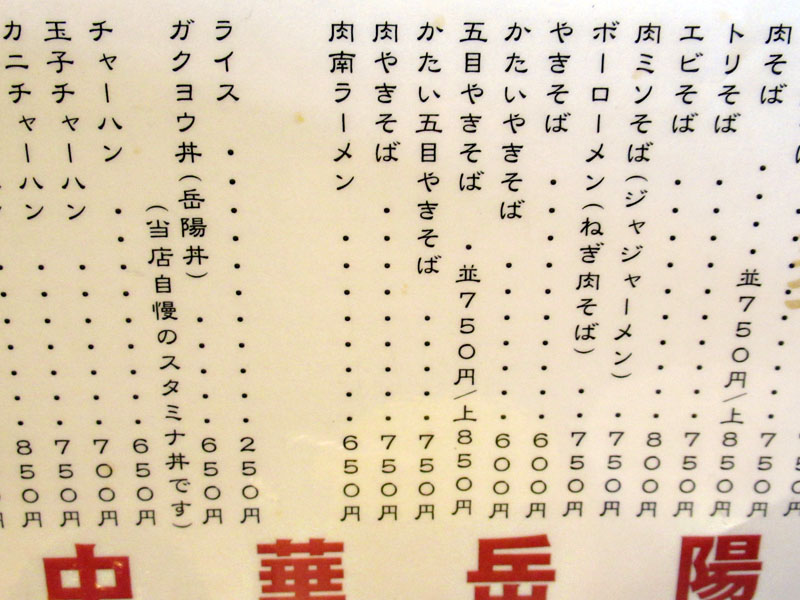 肉そば・・・・並750円/上850円
トリそば・・・・・・・・・750円
エビそば・・・・・・・・・800円
肉ミソそば(ジャジャーメン)・750円
ボーローメン(ねぎ肉そば)・・750円
やきそば・・・・・・・・・600円
かたいやきそば・・・・・・600円
五目やきそば・並750円/上850円
かたい五目やきそば・・・・750円
肉やきそば・・・・・・・・750円
肉南ラーメン・・・・・・・650円
ライス・・・・・・・・・・250円
ガクヨウ丼(岳陽丼)・・・・650円
(当店自慢のスタミナ丼です)
チャーハン・・・・・・・・650円
玉子チャーハン・・・・・・700円
カニチャーハン・・・・・・750円
850円
中華岳陽